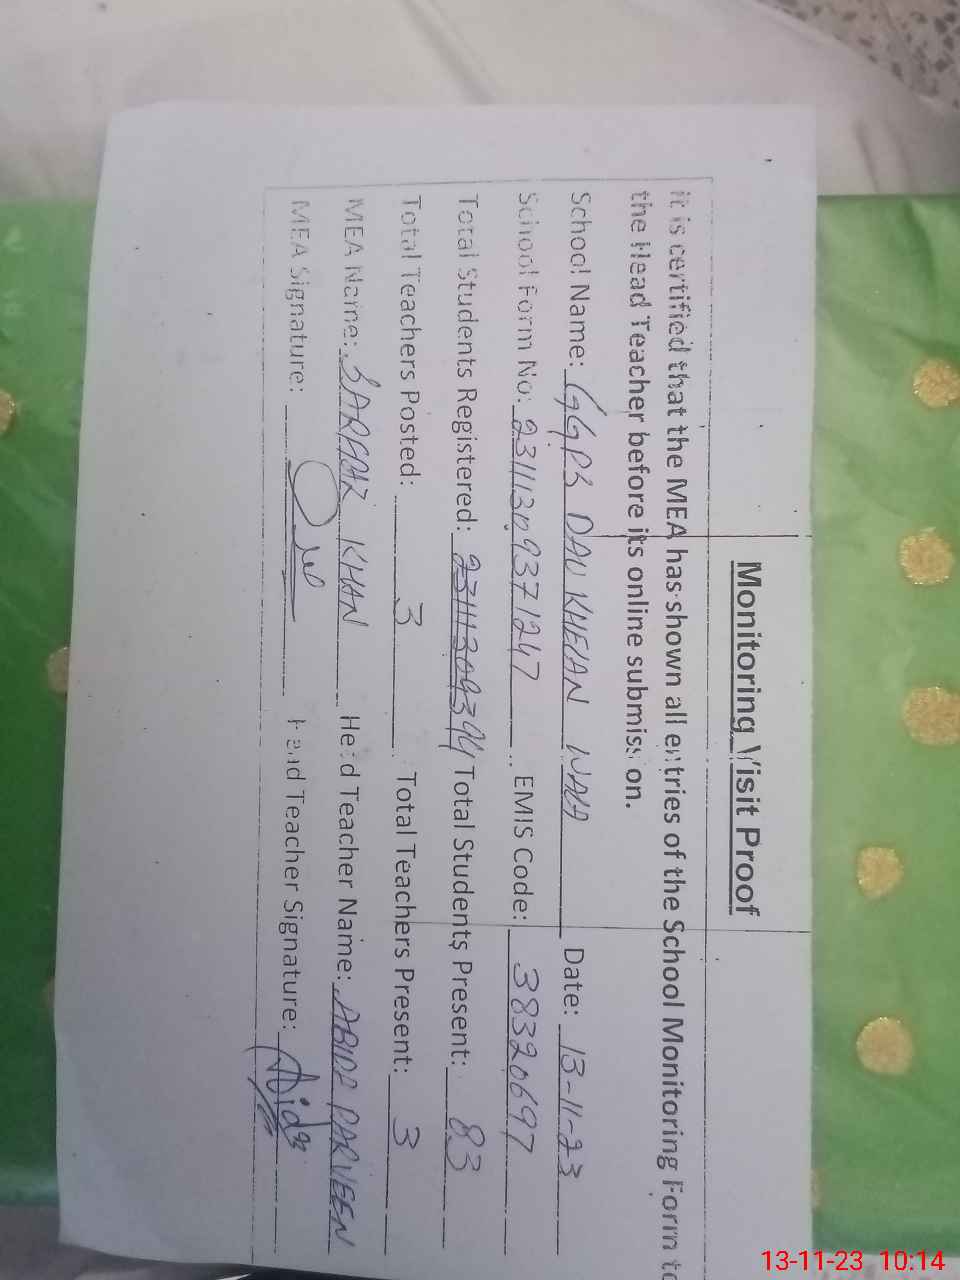 Monitoring Visit Proof
It is certified that the MEA has shown all entries of the School Monitoring Form to
the Head Teacher before its online submission.
School Name: GGPS DAU KHELAN WALA Date: 13-11-23
School Form No: 23111309371247 EMIS Code: 38320697
Total Students Registered: Total Students Present: 83
Total Teachers Posted: 3 Total Teachers Present: 3
MEA Name: SARFRAZ KHAN Head Teacher Name: ABIDA PARVEEN
MEA Signature: Head Teacher Signature: Abida
13-11-23 10:14